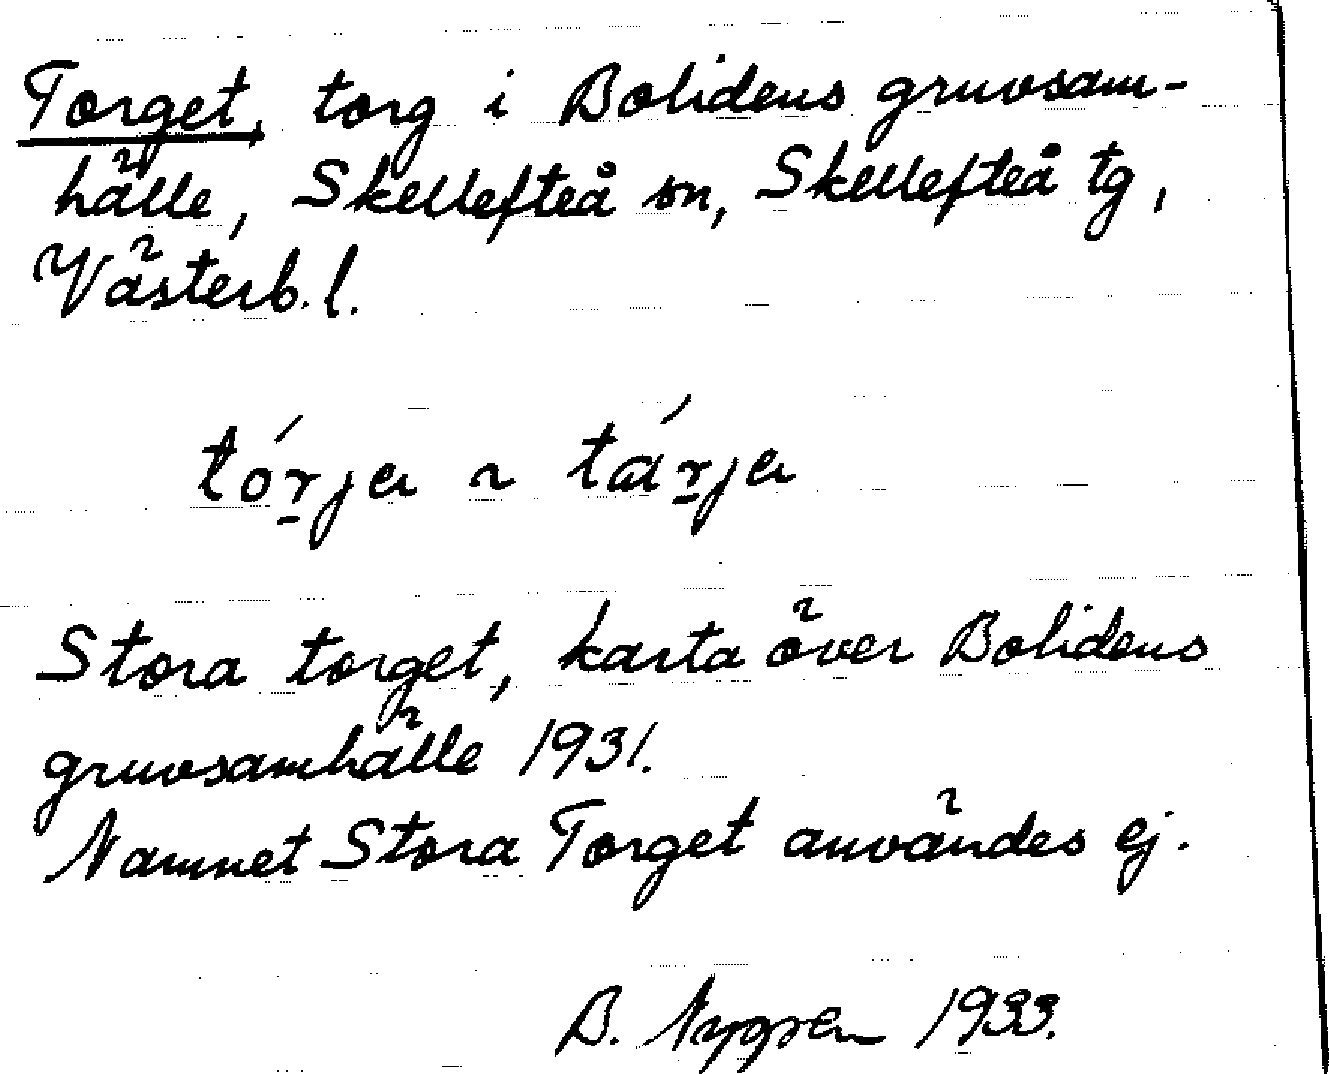 Torget, torg i Bolidens gruvsam-
hälle, Skellefteå sn, Skellefteå tg,
Västerb. l.
tór̠ja ~ tár̠ja
Stora torget, karta över Bolidens
gruvsamhälle 1931.
Namnet Stora Torget användes ej.
B. Nygren 1933.